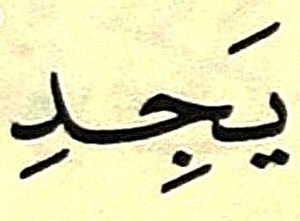 يَجِدِ